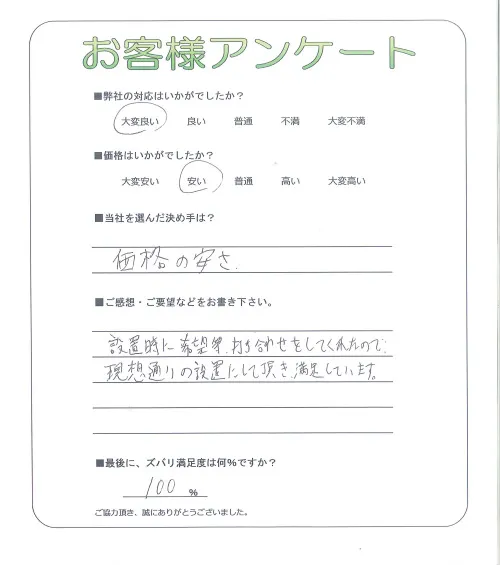 お客様アンケート
■弊社の対応はいかがでしたか?
大変良い 良い 普通 不満 大変不満
■価格はいかがでしたか?
大変安い 安い 普通 高い 大変高い
■当社を選んだ決め手は?
価格の安さ.
■ご感想・ご要望などをお書き下さい。
設置時に希望等、打ち合わせをしてくれたので、
現想通りの設置にして頂き、満足しています。
■最後に、ズバリ満足度は何%ですか?
100 %
ご協力頂き、誠にありがとうございました。